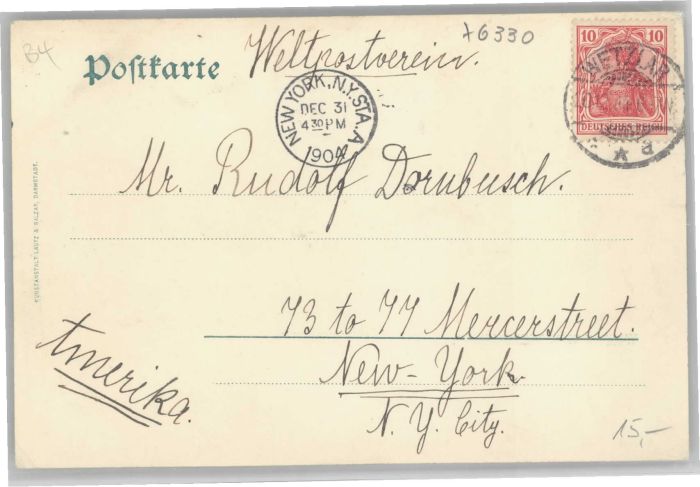 B4
46330
Postkarte
Weltpostverein.
10 10
DEUTSCHES REICH
WETZLAR
* a
NEW YORK, N.Y. STA. A
DEC 31
4 30 PM
1904
Mr. Rudolf Dornbusch.
73 to 77 Mercerstreet.
New-York.
N. Y. City.
Amerika.
15,-
KUNSTANSTALT LAUTZ & BALZAR, DARMSTADT.